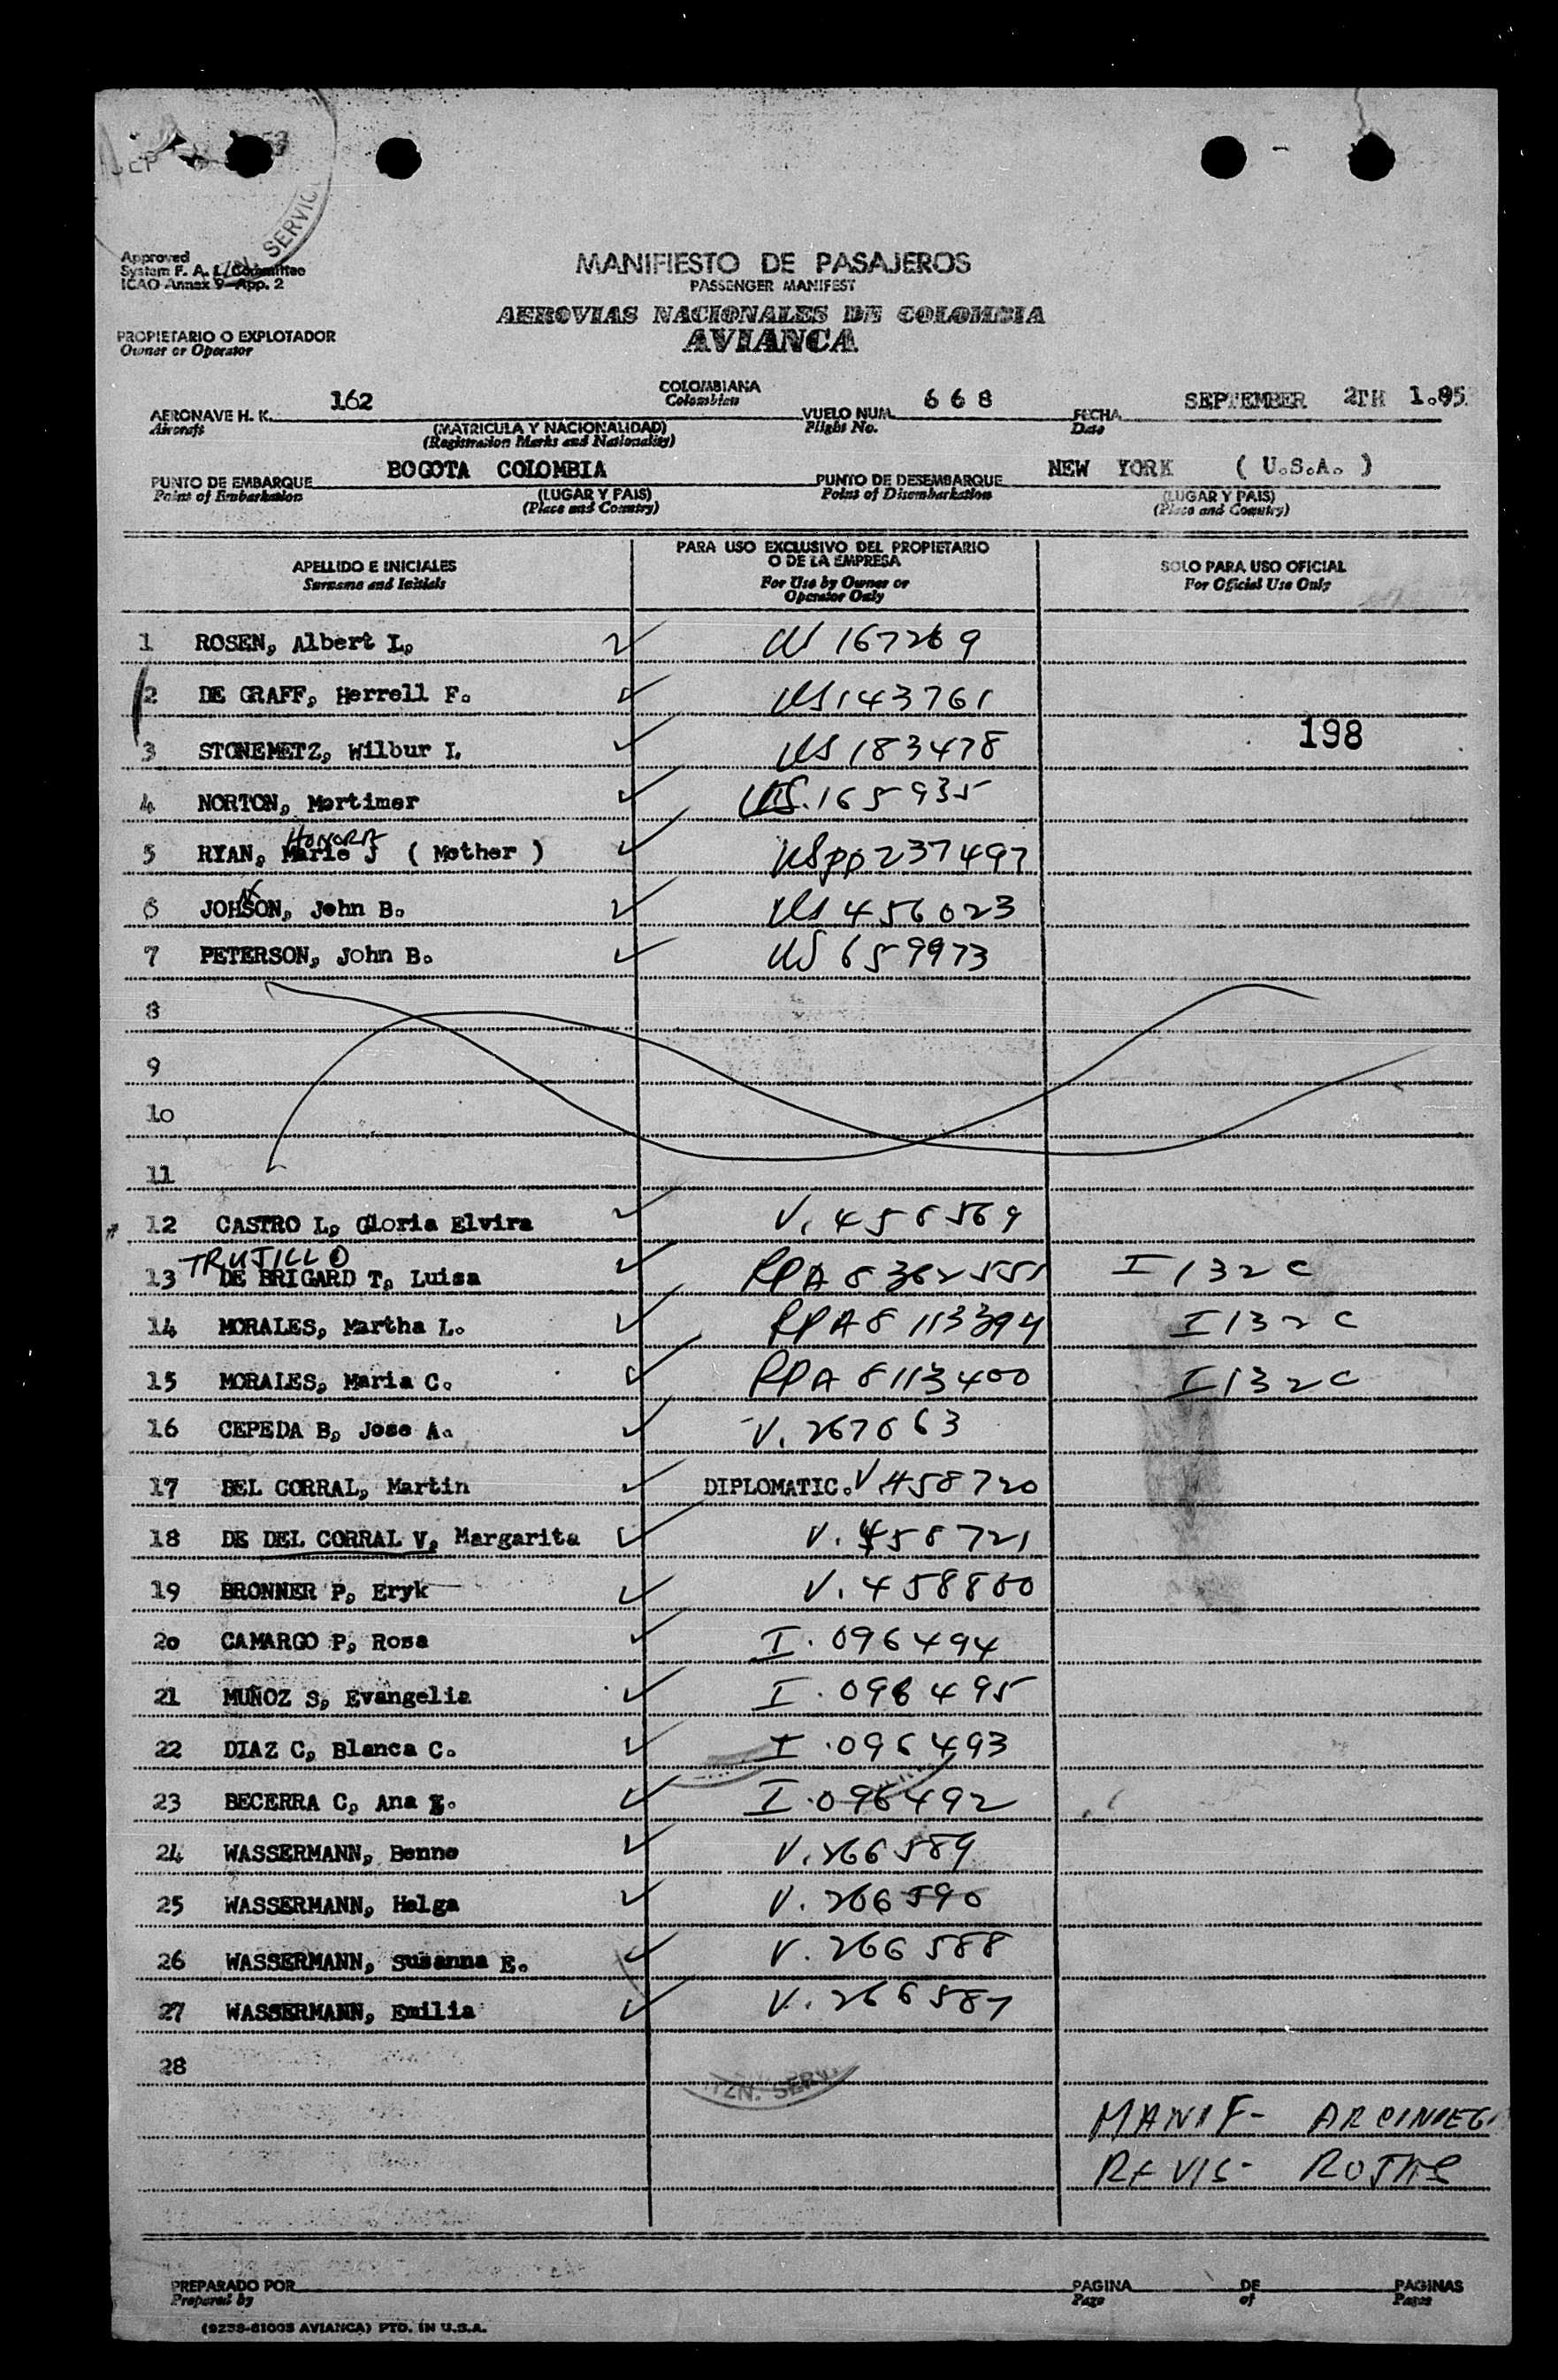 SERVIC
Approved
System F. A. L. Committee
ICAO Annex 9-App. 2
MANIFIESTO DE PASAJEROS
PASSENGER MANIFEST
AEROVIAS NACIONALES DE COLOMBIA
AVIANCA
PROPIETARIO O EXPLOTADOR
Owner or Operator
AERONAVE H. K. 162 COLOMBIANA VUELO NUM. 668 FECHA SEPTEMBER 2TH 1.95
Aircraft Colombian Flight No. Date
(MATRICULA Y NACIONALIDAD)
(Registration Marks and Nationality)
PUNTO DE EMBARQUE BOGOTA COLOMBIA PUNTO DE DESEMBARQUE NEW YORK ( U.S.A. )
Point of Embarkation (LUGAR Y PAIS) Point of Disembarkation (LUGAR Y PAIS)
(Place and Country) (Place and Country)
APELLIDO E INICIALES PARA USO EXCLUSIVO DEL PROPIETARIO O DE LA EMPRESA SOLO PARA USO OFICIAL
Surname and Initials For Use by Owner or Operator Only For Official Use Only
1 ROSEN, Albert L, US 167269
2 DE GRAFF, Herrell F. US 143761
198
3 STONEMETZ, Wilbur I. US 183478
4 NORTON, Mortimer US.165935
HONORA
5 RYAN, Marie J ( Mother ) USpp237497
N
6 JOHSON, John B. US 456023
7 PETERSON, John B. US 659973
8
9
10
11
12 CASTRO L, Gloria Elvira V. 456569
TRUJILLO
13 DE BRIGARD T, Luisa RPA 8362555 I 132 C
14 MORALES, Martha L. RPA8 113394 I 132 C
15 MORALES, Maria C. RPA 8113400 I 132 C
16 CEPEDA B, Jose A. V. 267663
17 DEL CORRAL, Martin DIPLOMATIC. V 458720
18 DE DEL CORRAL V, Margarita V. 458721
19 BRONNER P, Eryk V. 458800
20 CAMARGO P, Rosa I. 096494
21 MUÑOZ S, Evangelia I. 096495
22 DIAZ C, Blanca C. I. 096493
23 BECERRA C, Ana I. 096492
24 WASSERMANN, Benno V. 266589
25 WASSERMANN, Helga V. 266590
26 WASSERMANN, Susanna E. V. 266588
27 WASSERMANN, Emilia V. 266587
28
TZN. SERV
MANIF- ARCINIEG
REVIS- ROJAS
PREPARADO POR PAGINA DE PAGINAS
Prepared by Page of Pages
(9238-61005 AVIANCA) PTD. IN U.S.A.